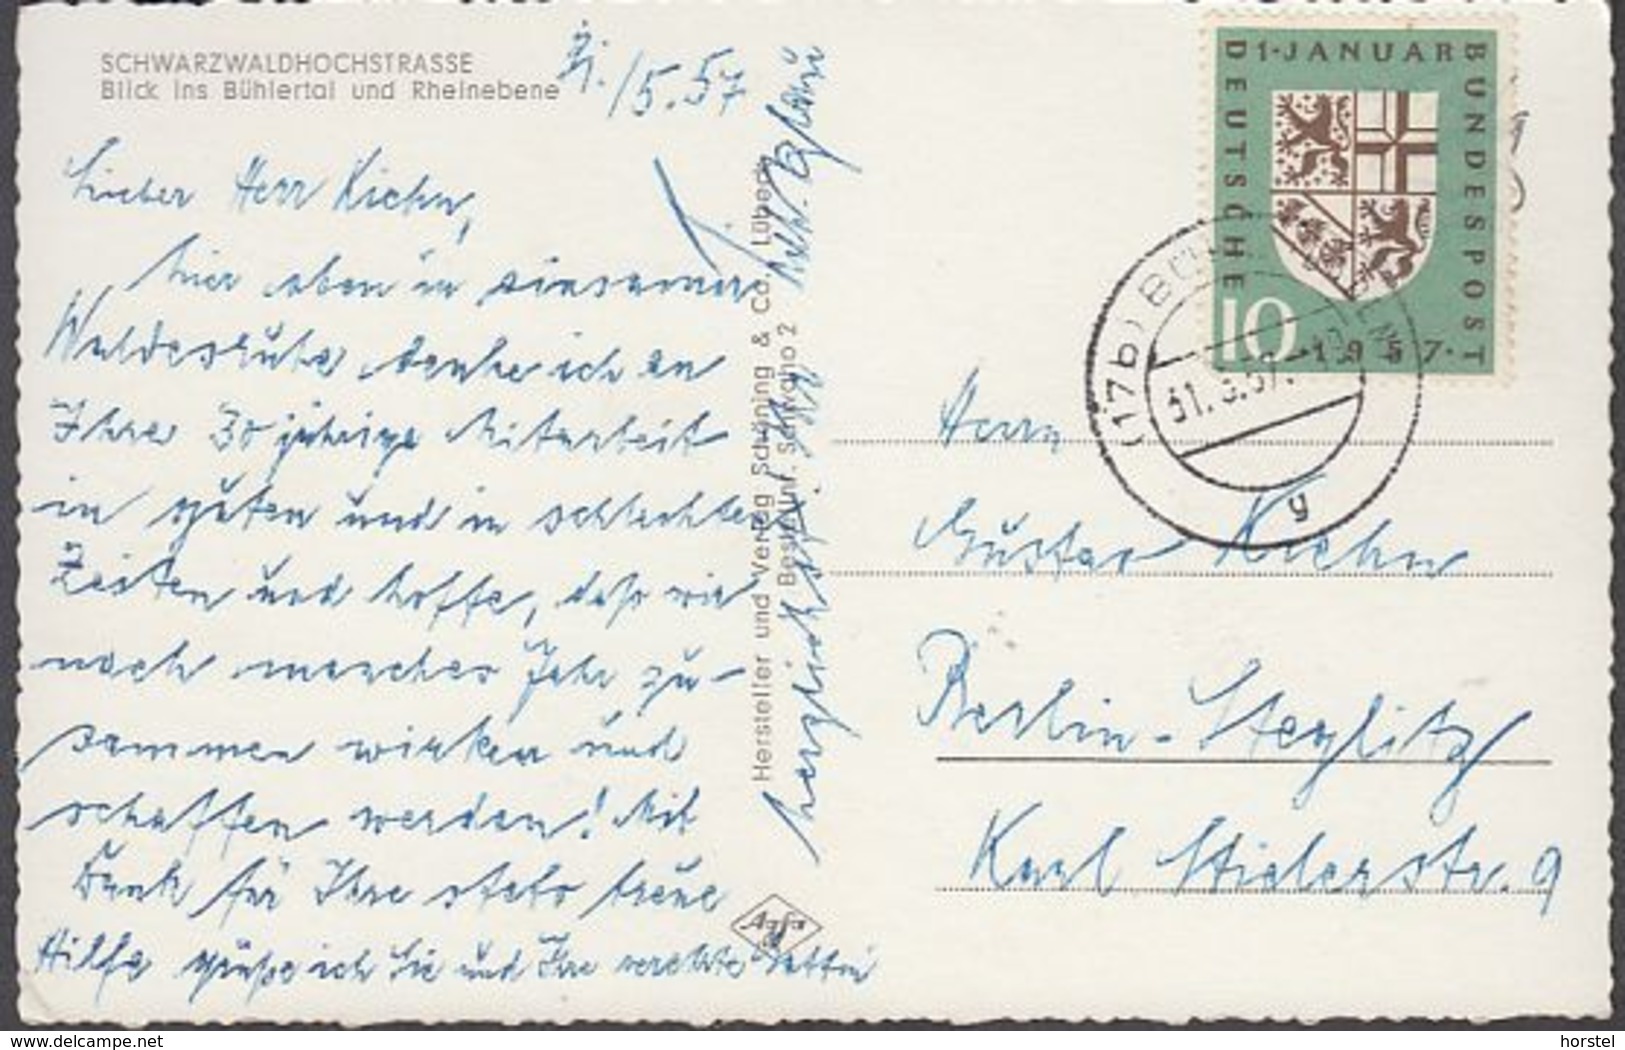 SCHWARZWALDHOCHSTRASSE
Blick ins Bühlertal und Rheinebene
/5.57
Lieber Herr Kiehn,
hier oben in einsamer
Waldesruhe denke ich an
Ihre 30 jährige Mitarbeit
in guten und in schlechten
Zeiten und hoffe, daß wir
noch manches Jahr zu-
sammen wirken und
schaffen werden! Mit
Dank für Ihre stets treue
Hilfe grüße ich Sie und Ihre verehrte Gattin
herzlichst
Hersteller und Verlag Schöning & Co., Lübeck
Bestellnr. Schwaho 2
Agfa
1·JANUAR
DEUTSCHE
BUNDESPOST
10
1957·
(17b) BÜHL
31.5.57
y
Herrn
Gustav Kiehn
Berlin-Steglitz
Karl Stielerstr. 9
delcampe.net
horstel